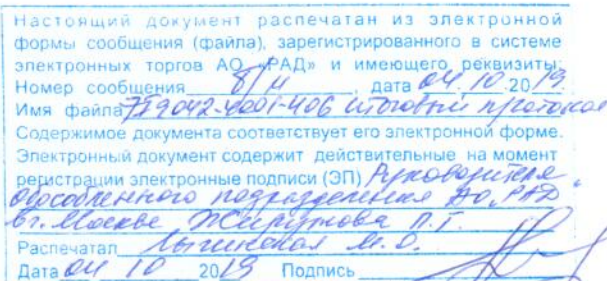 Настоящий документ распечатан из электронной
формы сообщения (файла), зарегистрированного в системе
электронных торгов АО «РАД» и имеющего реквизиты:
Номер сообщения б/н , дата 04.10.2019.
Имя файла 719042-4001-406 итоговый протокол
Содержимое документа соответствует его электронной форме.
Электронный документ содержит действительные на момент
регистрации электронные подписи (ЭП) Руководителя
обособленного подразделения АО "РАД"
в г. Москве П.Г.
Распечатал М.О.
Дата 04 10 2019 Подпись